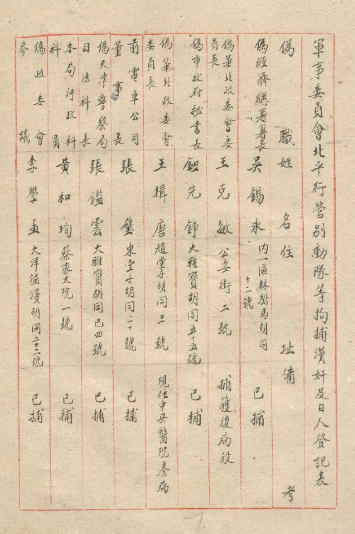 軍事委員會北平行營別動隊等拘捕漢奸及日人登記表
偽職 姓名 住址 備考
偽經濟總署署長 吳錫永 內一區林駙馬胡同十二號 已捕
偽華北政委會委員長 王克敏 公安街二號 捕獲後病歿
偽市政府秘書長 鈕先錚 大雅寶胡同五十五號 已捕
偽華北政委會委員長 王揖唐 趙堂子胡同三號 現住中央醫院養病
前電車公司董事長 張璧 東堂子胡同二十號 已捕
偽天津警察局司法科長 張鑑雲 大雅寶胡同已四號 已捕
本局行政科科員 黃和珣 蔡家大院一號 已捕
偽政委會參議 李學孟 大洋溢賓胡同二十三號 已捕